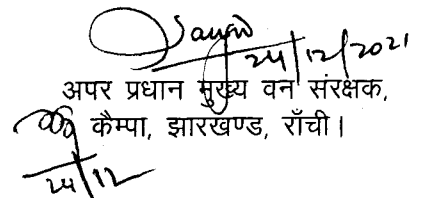 24/12/2021
अपर प्रधान मुख्य वन संरक्षक,
कैम्पा, झारखण्ड, राँची।
24/12